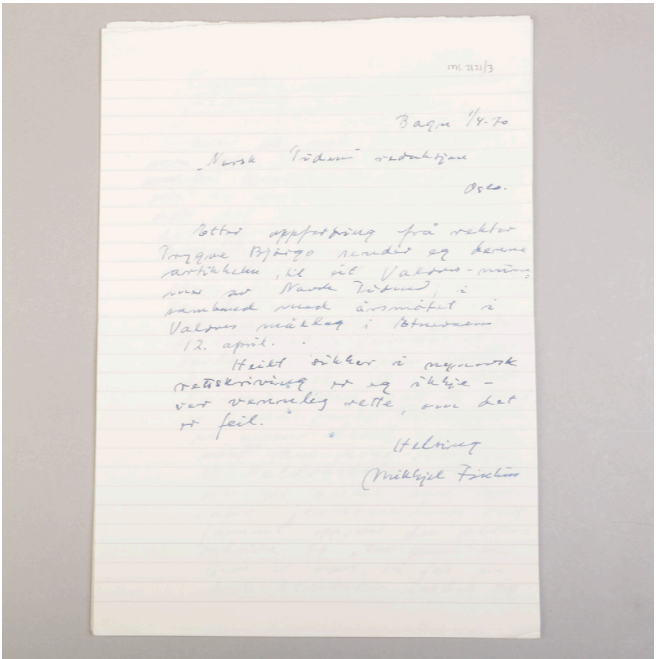 Bagn 1/4-70
"Norsk Tidend" redaksjon
Oslo.
Etter oppfordring frå rektor
Trygve Bjørgo sender eg denne
artikkelen til eit Valdres-num
mer av Norsk Tidend, i
samband med årsmøtet i
Valdres mållag i
12. april.
Heilt sikker i nynorsk
rettskriving er eg ikkje -
ver vennleg rette, om det
er feil.
Helsing
Mikkjel